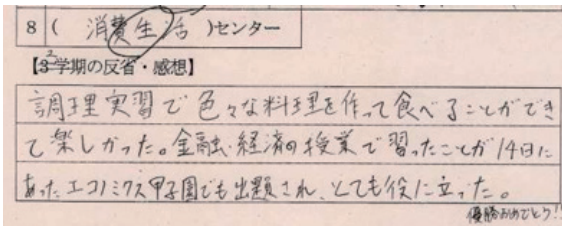 8 ( 消費生活 )センター
【2学期の反省・感想】
調理実習で色々な料理を作って食べることができ
て楽しかった。金融・経済の授業で習ったことが14日に
あったエコノミクス甲子園でも出題され、とても役に立った。
優勝おめでとう!!